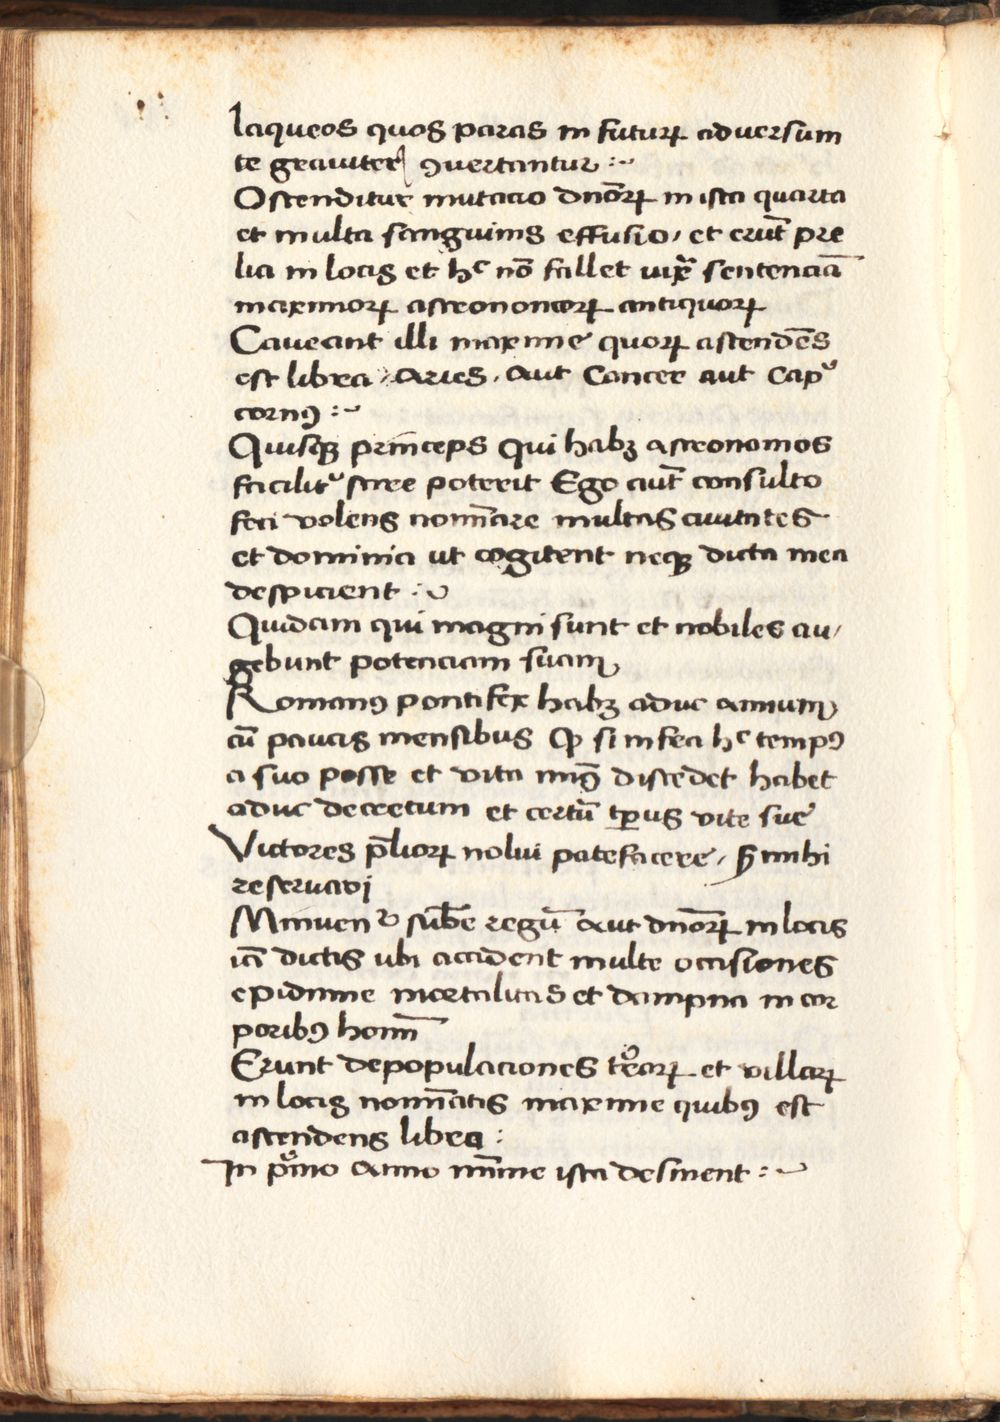 laqueos quos paras in futurꝝ adversum
te graviter ꝯvertantur :~
Ostenditur mutacio dnōrꝝ in ista quarta
et multa sanguinis effusio, et erūt pre
lia in locis et hͨ nō fallet iuxͣ sentenciā
maximorꝝ astronomorꝝ antiquorꝝ
Caveant illi maxime quorꝝ astendēs
est libra, Aries, aut Cancer aut Cap
cornꝰ :~
Quisqꝫ princeps qui habꝫ astronomos
facilit᷑ scire poterit Ego aut̄ consulto
feci volens nomīare multas civitates
et dominia ut cogitent neqꝫ dicta mea
despicient :~
Quidam qui magni sunt et nobiles au,
gebunt potenciam suam
Romanꝰ pontifex habꝫ aduc annum
cū paucis mensibus Qꝫ si infra hͨ tempꝰ
a suo posse et vita discedet habet
aduc decretum et certū tp̄us vite sue
Victores p̄liorꝝ nolui patefacere, mihi
reservavi
regū aut dnōrꝝ in locis
iā dictis ubi accident multe occisiones
epidimie mortalitas et dampna in cor
poribꝰ homī
Erunt depopulaciones et villarꝝ
in locis nomīatis maxime quibꝰ est
astendens libra :
In pͦmo Anno minime ista desinent :~